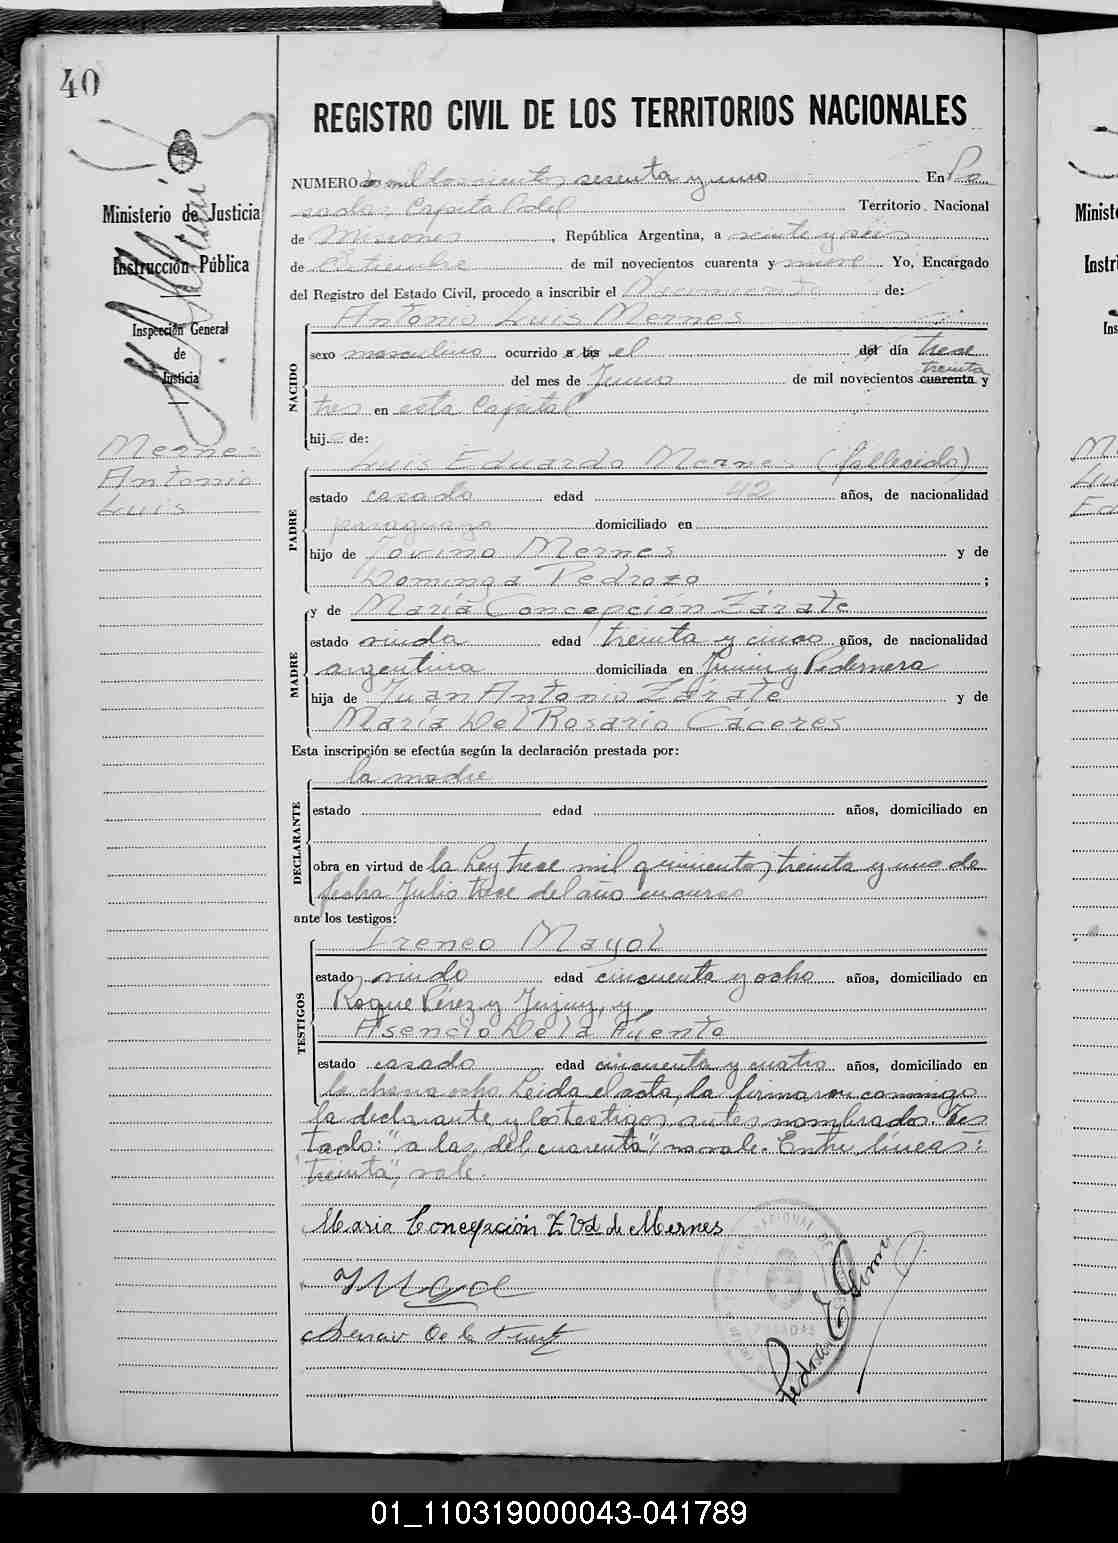 40
REGISTRO CIVIL DE LOS TERRITORIOS NACIONALES
NUMERO mil doscientos sesenta y uno En Po
sadas Capital del Territorio Nacional
de Misiones, República Argentina, a veinte y seis
de Setiembre de mil novecientos cuarenta y nueve Yo, Encargado
del Registro del Estado Civil, procedo a inscribir el Nacimiento de:
Ministerio de Justicia
Instrucción Pública
Inspección General
de
Justicia
Mernes
Antonio
Luis
NACIDO
Antonio Luis Mernes
sexo masculino ocurrido a las el del día trece
treinta
del mes de Junio de mil novecientos cuarenta y
tres en esta Capital
hij de:
PADRE
Luis Eduardo Mernes (fallecido)
estado casado edad 42 años, de nacionalidad
paraguayo domiciliado en
hijo de Jovino Mernes y de
Dominga Pedrozo ;
MADRE
y de María Concepción Zárate
estado viuda edad treinta y cinco años, de nacionalidad
argentina domiciliada en Junin y Pedernera
hija de Juan Antonio Zárate y de
María Del Rosario Cáceres
Esta inscripción se efectúa según la declaración prestada por:
DECLARANTE
la madre
estado edad años, domiciliado en
obra en virtud de la Ley trece mil quinientos treinta y uno de
fecha Julio trece del año en curso
ante los testigos:
TESTIGOS
Ireneo Mayol
estado viudo edad cincuenta y ocho años, domiciliado en
Roque Pérez y Jujuy, y
Asencio De la Fuente
estado casado edad cincuenta y cuatro años, domiciliado en
la chacra ocho Leida el acta, la firmaron conmigo
la declarante y los testigos antes nombrados. Tes
tado: "a las, del, cuarenta", no vale. Entre líneas:
"treinta", vale.
Maria Concepción Z Vd. de Mernes
Asencio De la Fuente
POSADAS
Minist
Instr
Ins
01_110319000043-041789